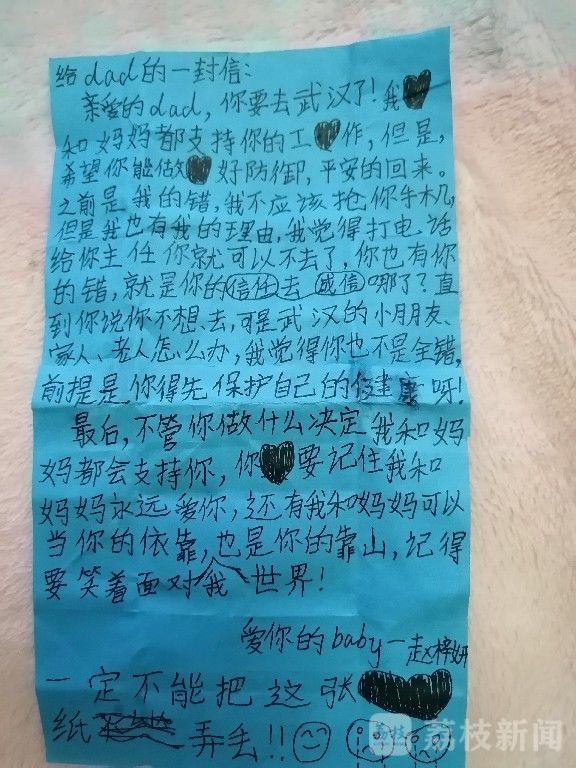 给dad的一封信:
亲爱的dad,你要去武汉了!我
和妈妈都支持你的工作,但是,
希望你能做好防御,平安的回来。
之前是我的错,我不应该抢你手机,
但是我也有我的理由,我觉得打电话
给你主任你就可以不去了,你也有你
的错,就是你的信任去诚信哪了?直
到你说你不想去,可是武汉的小朋友、
家人、老人怎么办,我觉得你也不是全错,
前提是你得先保护自己的健康呀!
最后,不管你做什么决定我和妈
妈都会支持你,你要记住我和
妈妈永远爱你,还有我和妈妈可以
当你的依靠,也是你的靠山,记得
要笑着面对我世界!
爱你的baby—赵梓妍
一定不能把这张
纸弄丢!!
荔枝新闻